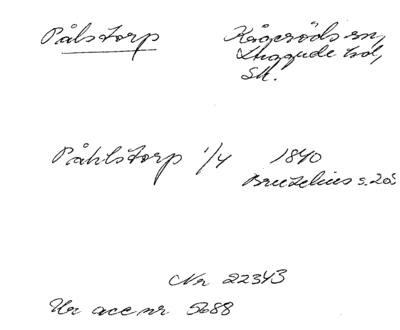 Pålstorp Kågeröds sn,
Luggude hd,
Sk.
Påhlstorp 1/4 1840
Bruzelius s. 203
Nr 22343
Ur acc nr 5688